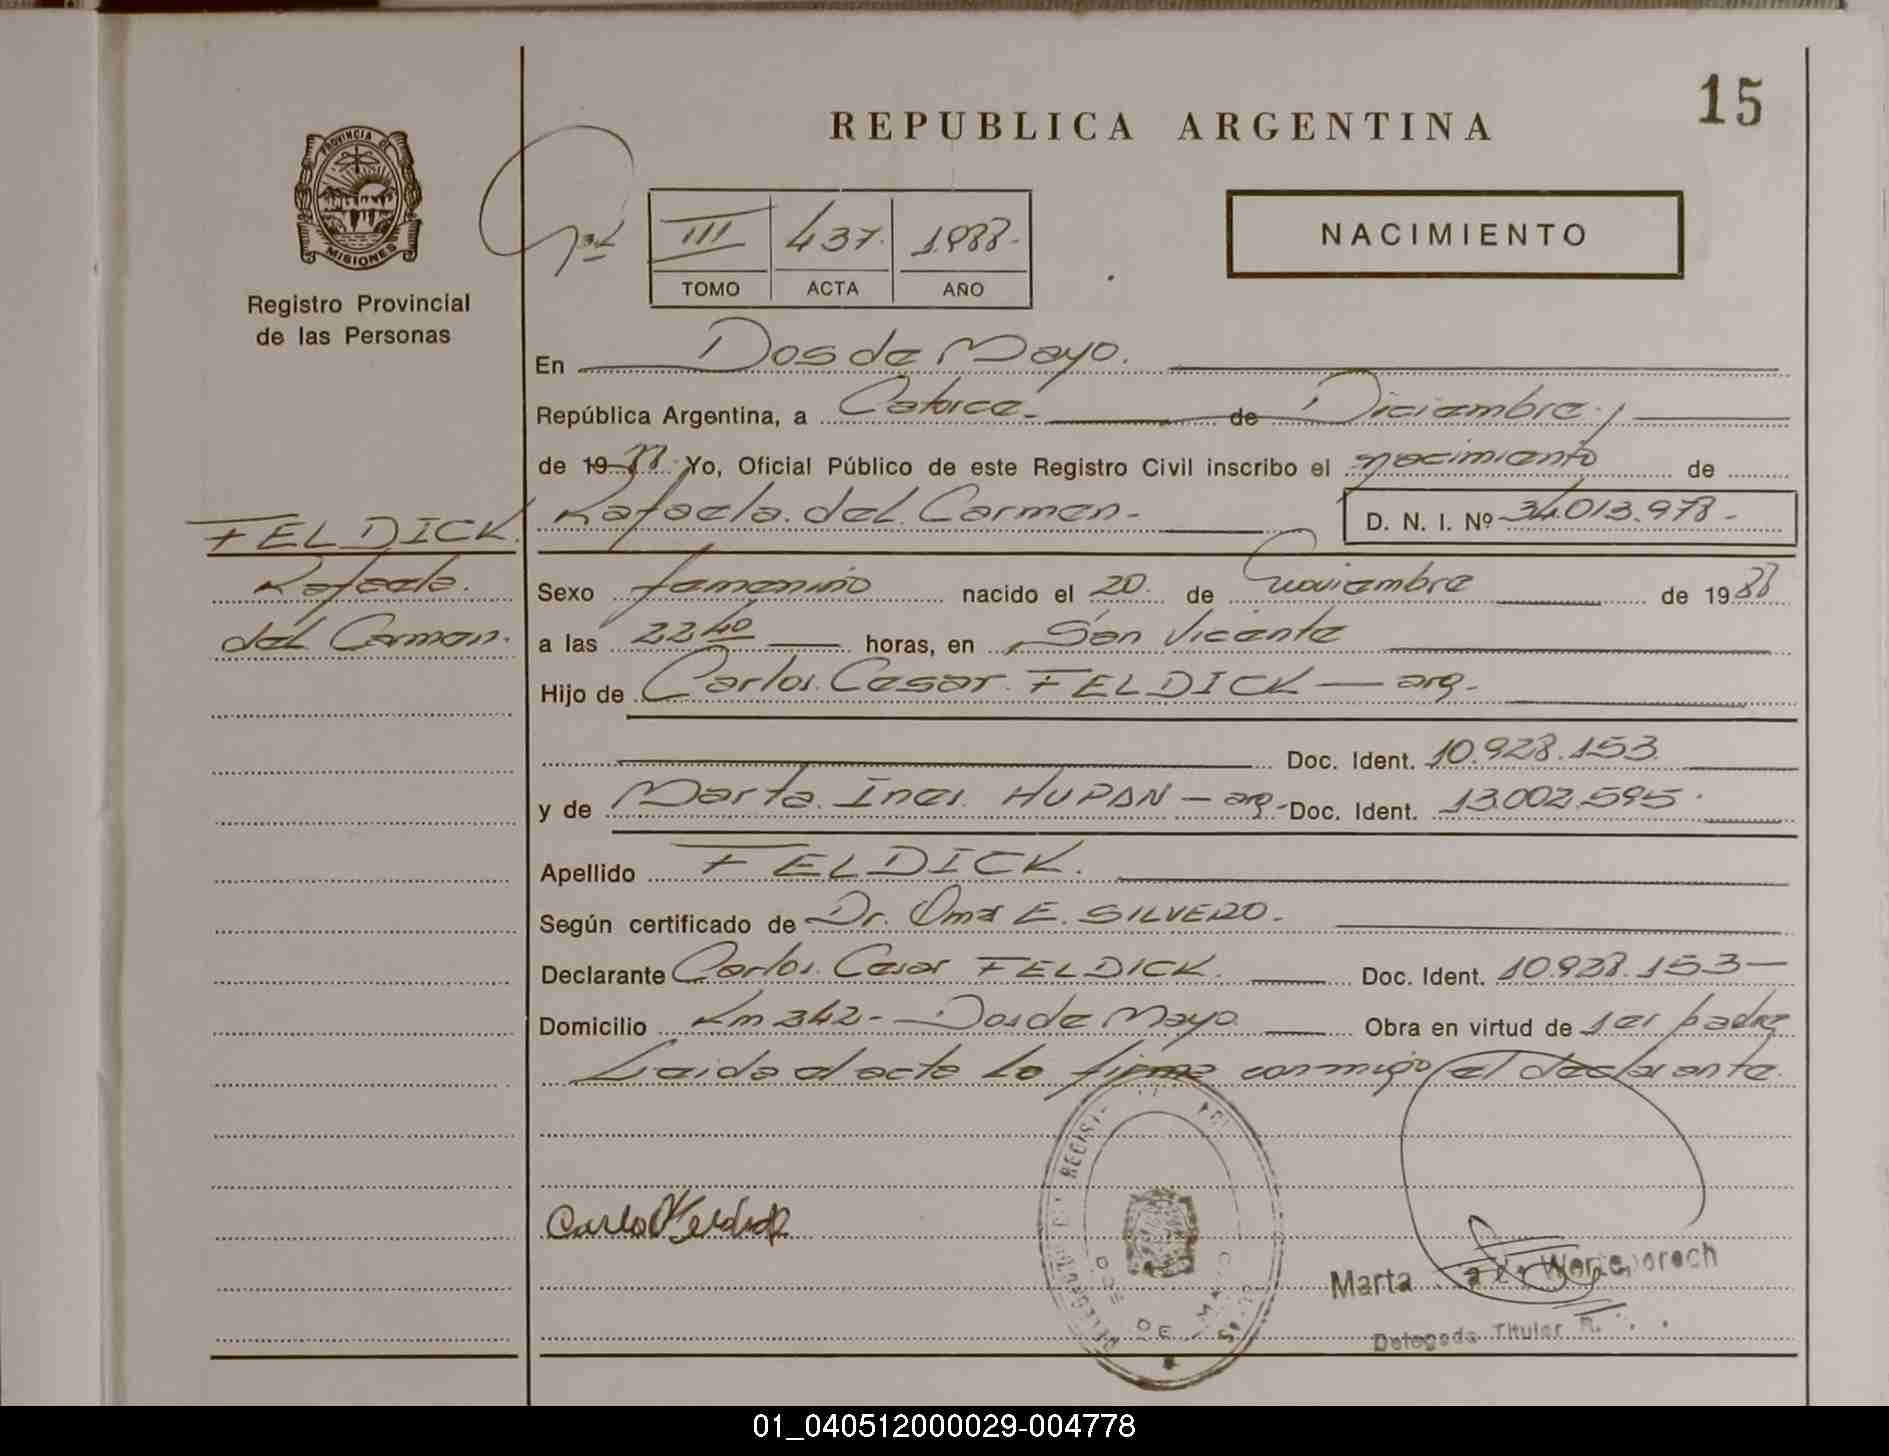 15
REPUBLICA ARGENTINA
PROVINCIA DE
MISIONES
Registro Provincial
de las Personas
III 437. 1988.
TOMO ACTA AÑO
NACIMIENTO
En Dos de Mayo.
República Argentina, a Catorce de Diciembre,
de 1988 Yo, Oficial Público de este Registro Civil inscribo el nacimiento de
FELDICK. Rafaela del Carmen- D. N. I. Nº 34.013.978-
Rafaela Sexo femenino nacido el 20 de Noviembre de 1988
del Carmen. a las 22 40 horas, en San Vicente
Hijo de Carlos Cesar FELDICK — arg.
Doc. Ident. 10.928.153
y de Marta Ines HUPAN - arg- Doc. Ident. 13.002.595
Apellido FELDICK.
Según certificado de Dr. Omar E. SILVERO.
Declarante Carlos Cesar FELDICK. Doc. Ident. 10.928.153-
Domicilio Km 342 - Dos de Mayo Obra en virtud de ser padre
Leida el acta la firma conmigo el declarante.
Marta
Delegada Titular R.
01_040512000029-004778